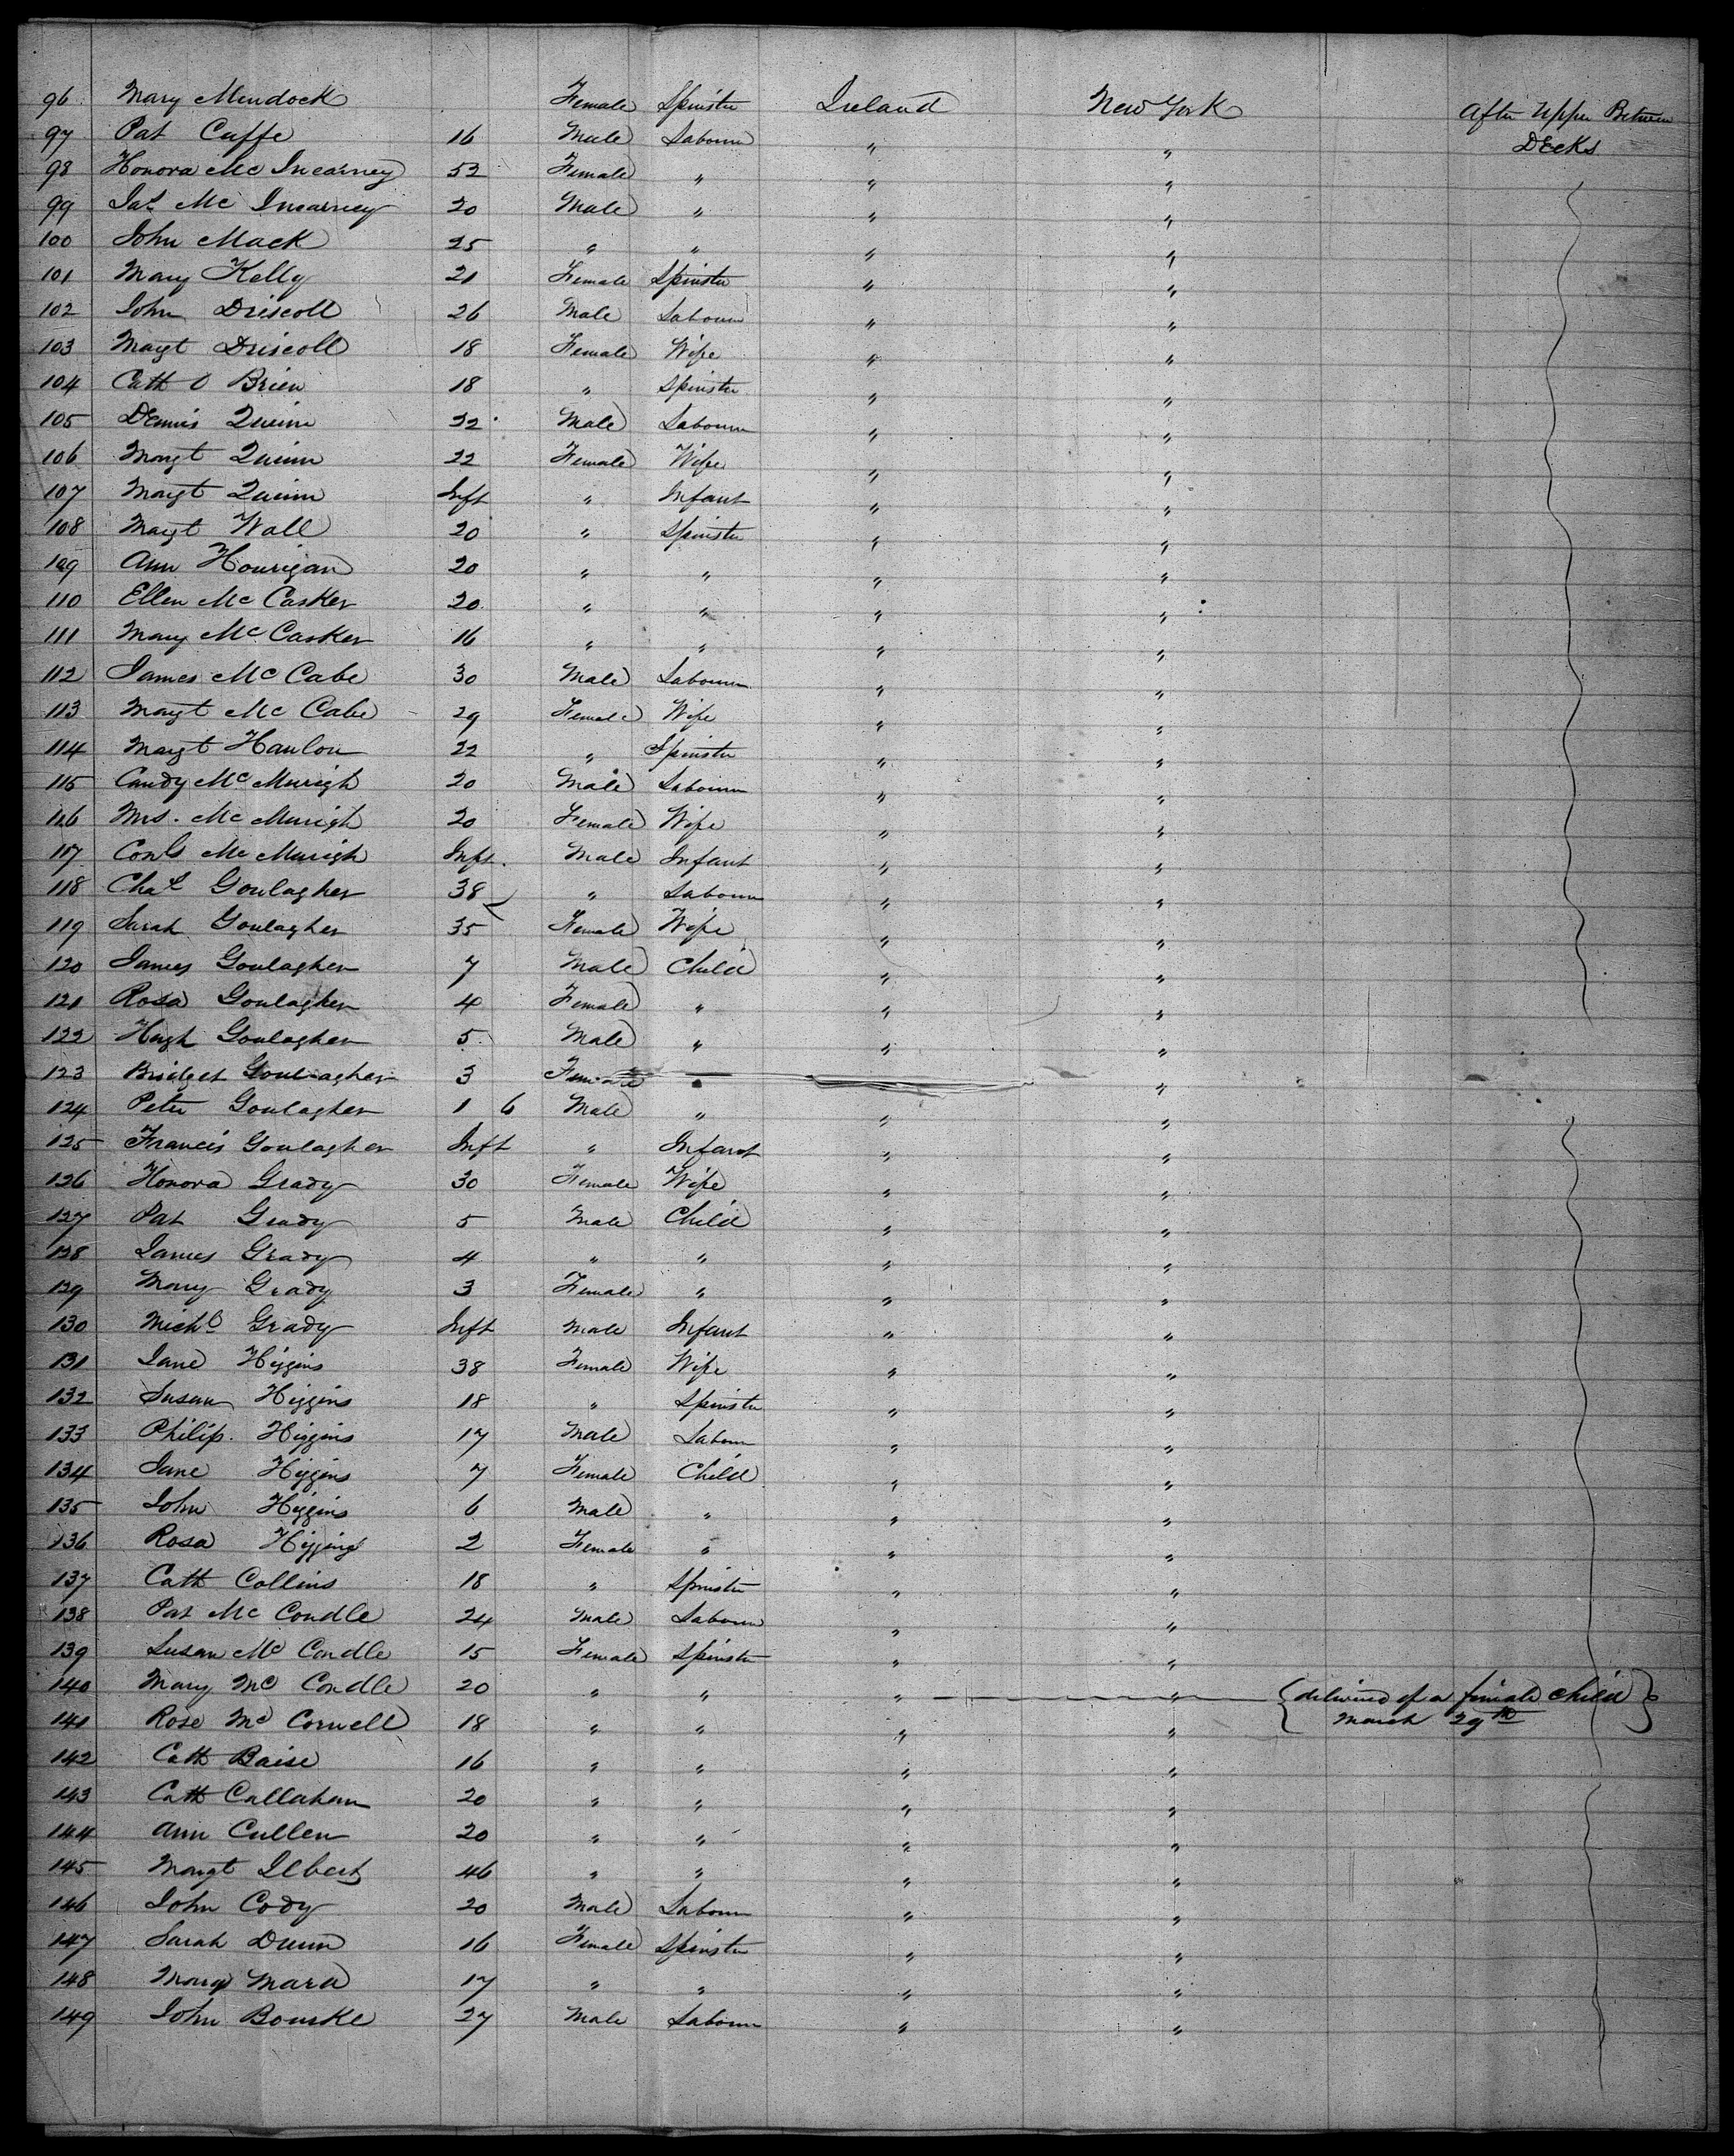 96 Mary Murdock Female Spinster Ireland New York After Upper Between
97 Pat Cuffe 16 Male Labourer " " Decks
98 Honora Mc Inearney 52 Female " " "
99 Jas Mc Inearney 20 Male " " "
100 John Mack 25 " " " "
101 Mary Kelly 21 Female Spinster " "
102 John Driscoll 26 Male Labourer " "
103 Magt Driscoll 18 Female Wife " "
104 Cath O Brien 18 " Spinster " "
105 Dennis Quinn 22 Male Labourer " "
106 Margt Quinn 22 Female Wife " "
107 Margt Quinn Inft " Infant " "
108 Magt Wall 20 " Spinster " "
109 Ann Hourigan 20 " " " "
110 Ellen Mc Casker 20 " " " "
111 Mary Mc Casker 16 " " " "
112 James Mc Cabe 30 Male Labourer " "
113 Magt Mc Cabe 29 Female Wife " "
114 Magt Hanlon 22 " Spinster " "
115 Candy Mc Murigh 20 Male Labourer " "
116 Mrs. Mc Murigh 20 Female Wife " "
117 Conls Mc Murigh Inft. Male Infant " "
118 Chas Goulagher 38 " Labourer " "
119 Sarah Goulagher 35 Female Wife " "
120 James Goulagher 7 Male Child " "
121 Rosa Goulagher 4 Female " " "
122 Hugh Goulagher 5 Male " " "
123 Bridget Goulagher 3 Female " "
124 Peter Goulagher 1 6 Male " " "
125 Francis Goulagher Inft " Infant " "
126 Honora Grady 30 Female Wife " "
127 Pat Grady 5 Male Child " "
128 James Grady 4 " " " "
129 Mary Grady 3 Female " " "
130 Michl Grady Inft Male Infant " "
131 Jane Higgins 38 Female Wife " "
132 Susan Higgins 18 " Spinster " "
133 Philip. Higgins 17 Male Labour " "
134 Jane Higgins 7 Female Child " "
135 John Higgins 6 Male " " "
136 Rosa Higgins 2 Female " " "
137 Cath Collins 18 " Spinster " "
138 Pat Mc Condle 24 Male Labourer " "
139 Susan Mc Condle 15 Female Spinster " "
140 Mary Mc Condle 20 " " " " delivered of a female child
141 Rose Mc Corwell 18 " " " " March 29th
142 Cath Baise 16 " " " "
143 Cath Callahan 20 " " " "
144 Ann Cullen 20 " " " "
145 Margt Ilbert 46 " " " "
146 John Cody 20 Male Labourer " "
147 Sarah Dunn 16 Female Spinster " "
148 Mary Mara 17 " " " "
149 John Bourke 27 Male Labourer " "